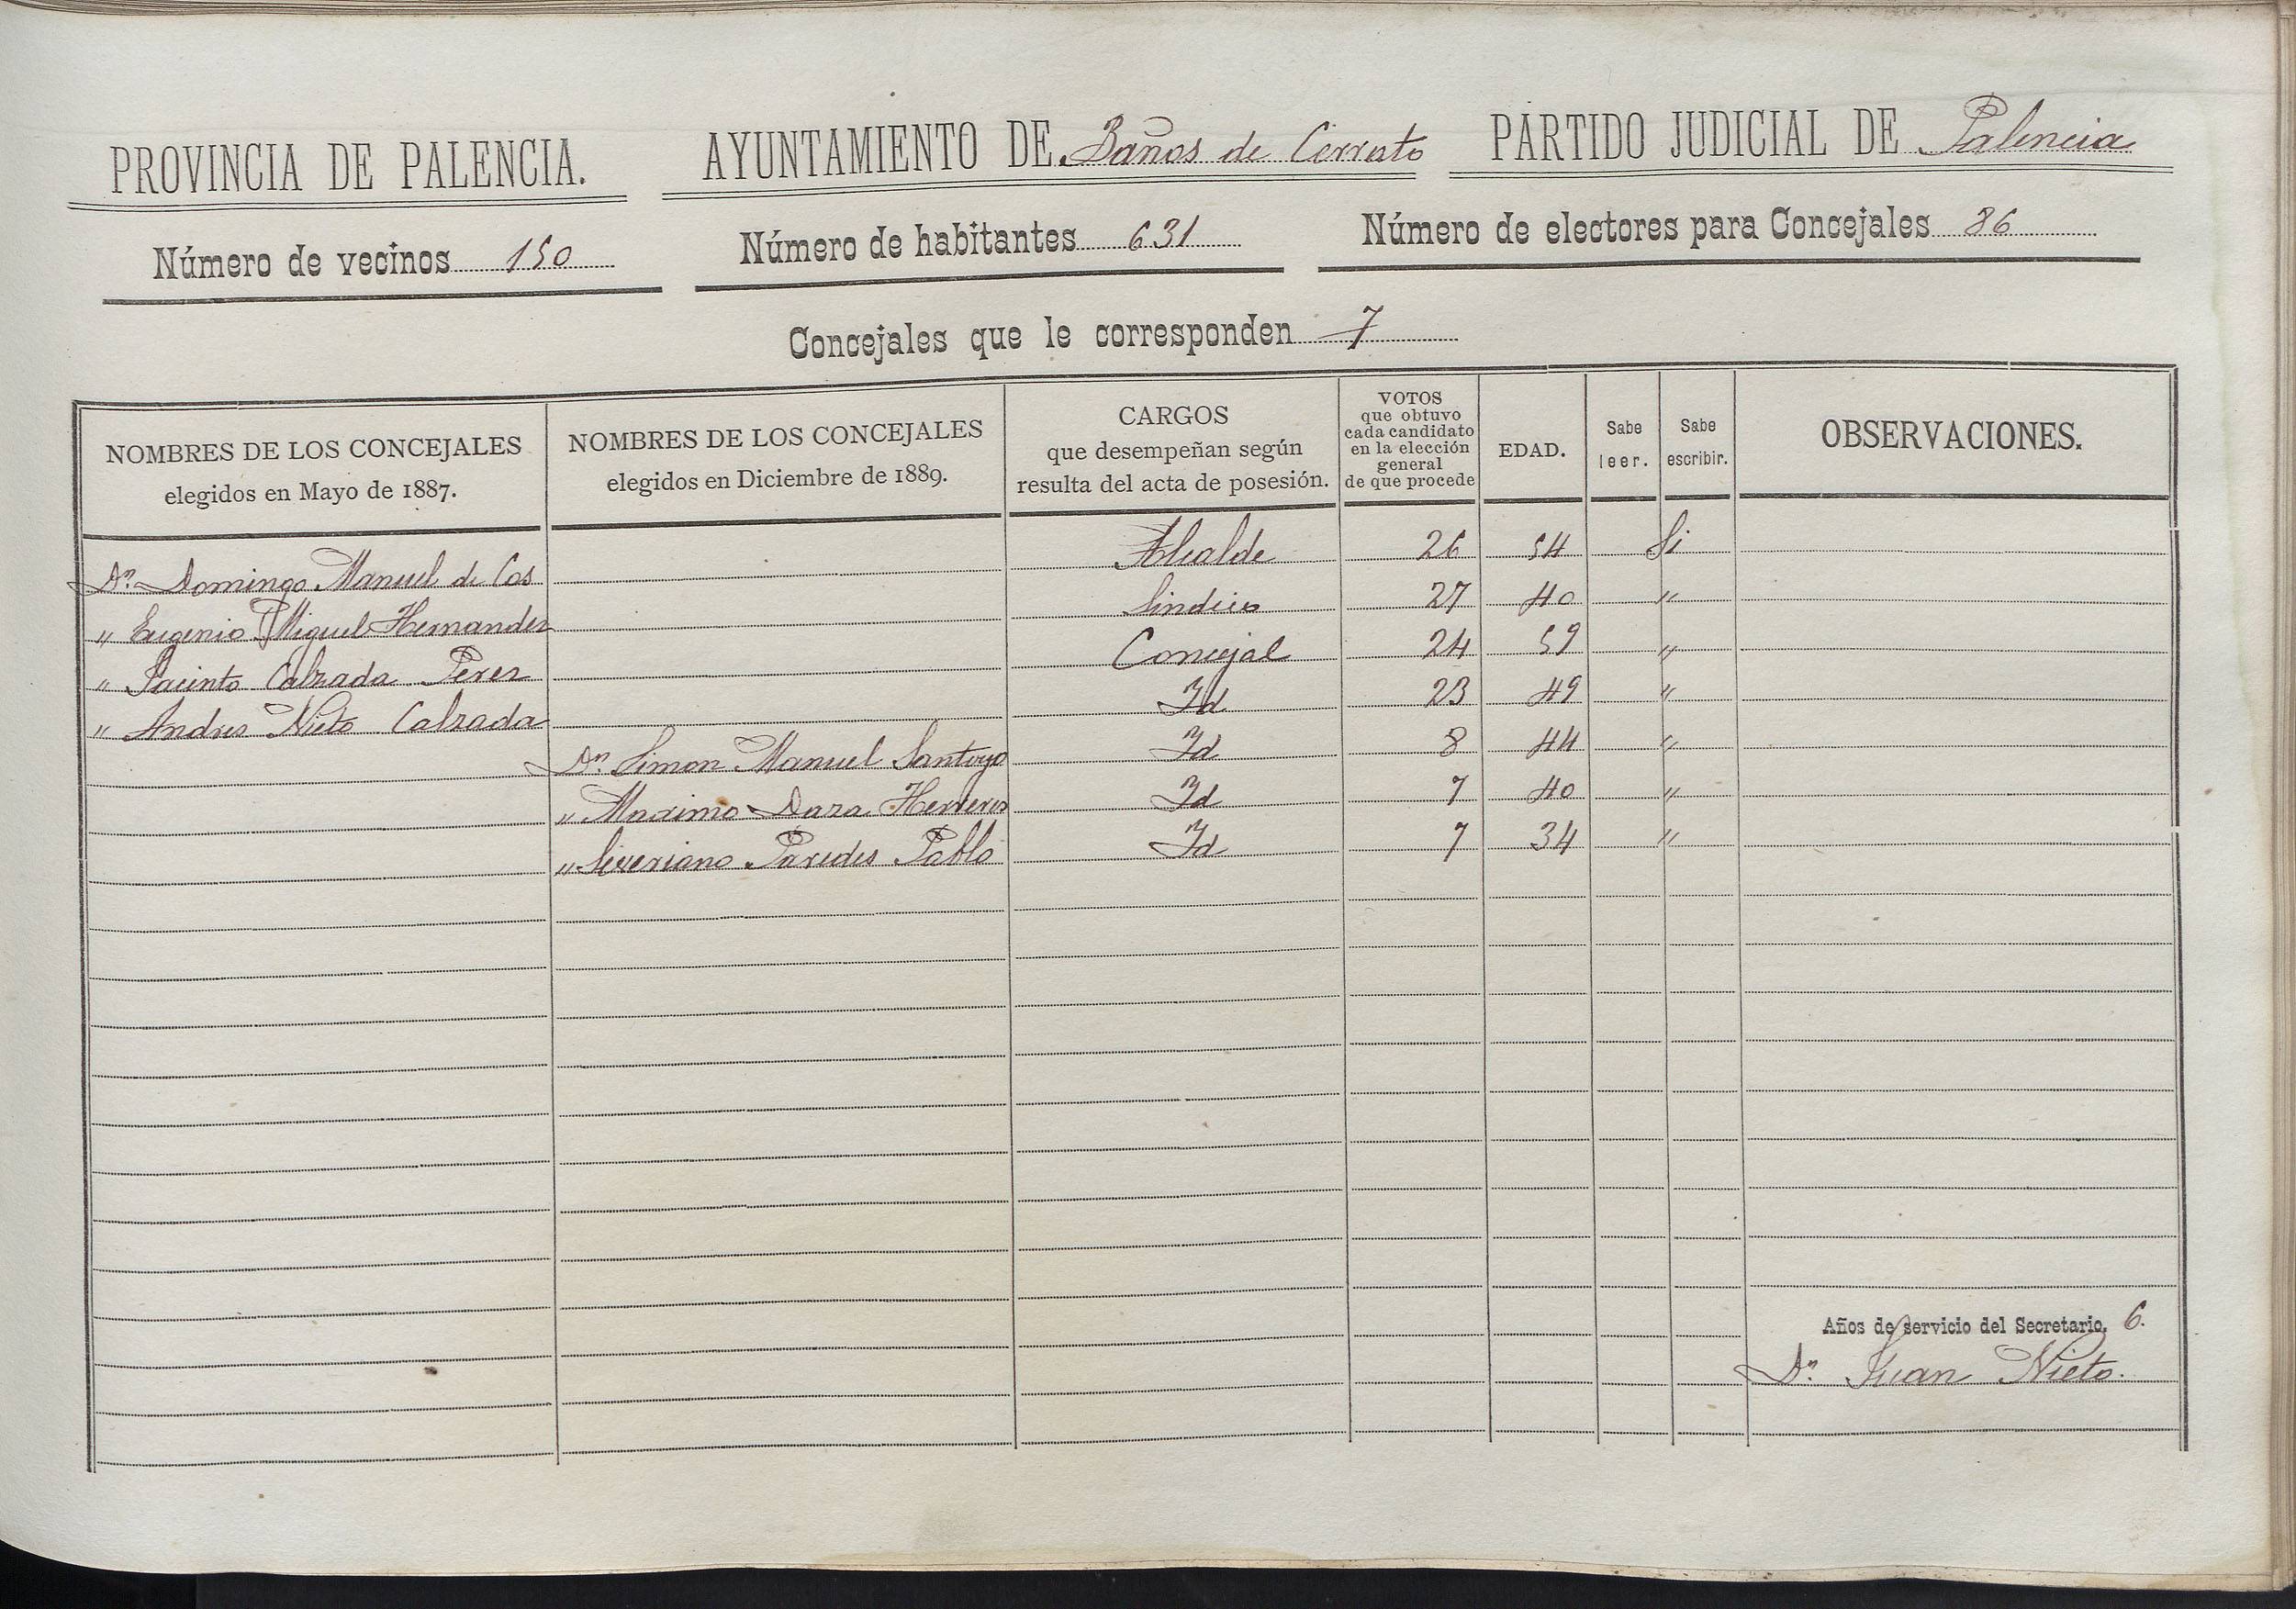 PROVINCIA DE PALENCIA. AYUNTAMIENTO DE Baños de Cerrato PARTIDO JUDICIAL DE Palencia
Número de vecinos 150 Número de habitantes 631 Número de electores para Concejales 86
Concejales que le corresponden 7
NOMBRES DE LOS CONCEJALES
elegidos en Mayo de 1887.
NOMBRES DE LOS CONCEJALES
elegidos en Diciembre de 1889.
CARGOS
que desempeñan según
resulta del acta de posesión.
VOTOS
que obtuvo
cada candidato
en la elección
general
de que procede
EDAD.
Sabe
leer.
Sabe
escribir.
OBSERVACIONES.
Dn. Domingo Manuel de Cos Alcalde 26 54 Si
" Eugenio Miguel Hernandez Sindico 27 40 "
" Jacinto Calzada Perez Concejal 24 59 "
" Andres Nieto Calzada Id 23 49 "
Dn. Simon Manuel Santoyo Id 8 44 "
" Maximo Daza Herreros Id 7 40 "
" Severiano Paredes Pablo Id 7 34 "
Años de servicio del Secretario, 6.
Dn. Juan Nieto.